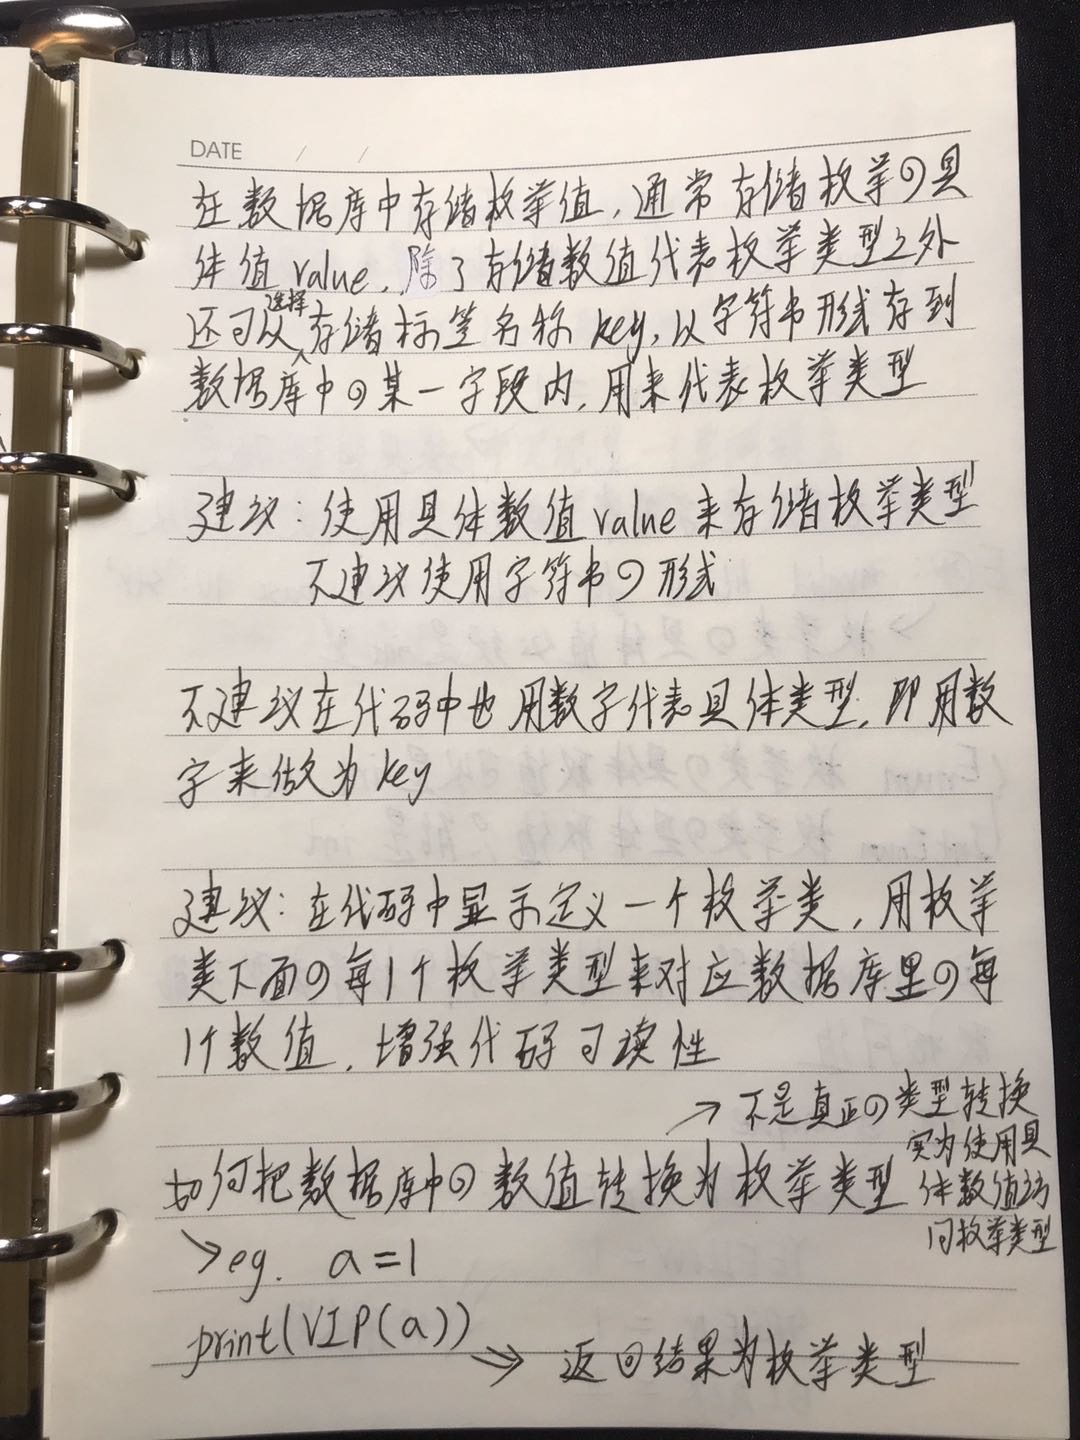 DATE / /
在数据库中存储枚举值，通常存储枚举の具
体值 value，除了存储数值代表枚举类型之外
还可以选择存储标签名称 key，以字符串形式存到
数据库中の某一字段内，用来代表枚举类型
建议：使用具体数值 value 来存储枚举类型
不建议使用字符串の形式
不建议在代码中也用数字代表具体类型，即用数
字来做为 key
建议：在代码中显示定义一个枚举类，用枚举
类下面の每1个枚举类型来对应数据库里の每
1个数值，增强代码可读性
→ 不是真正の类型转换
实为使用具
体数值访
问枚举类型
如何把数据库中の数值转换为枚举类型
> eg. a=1
print(VIP(a))
=> 返回结果为枚举类型